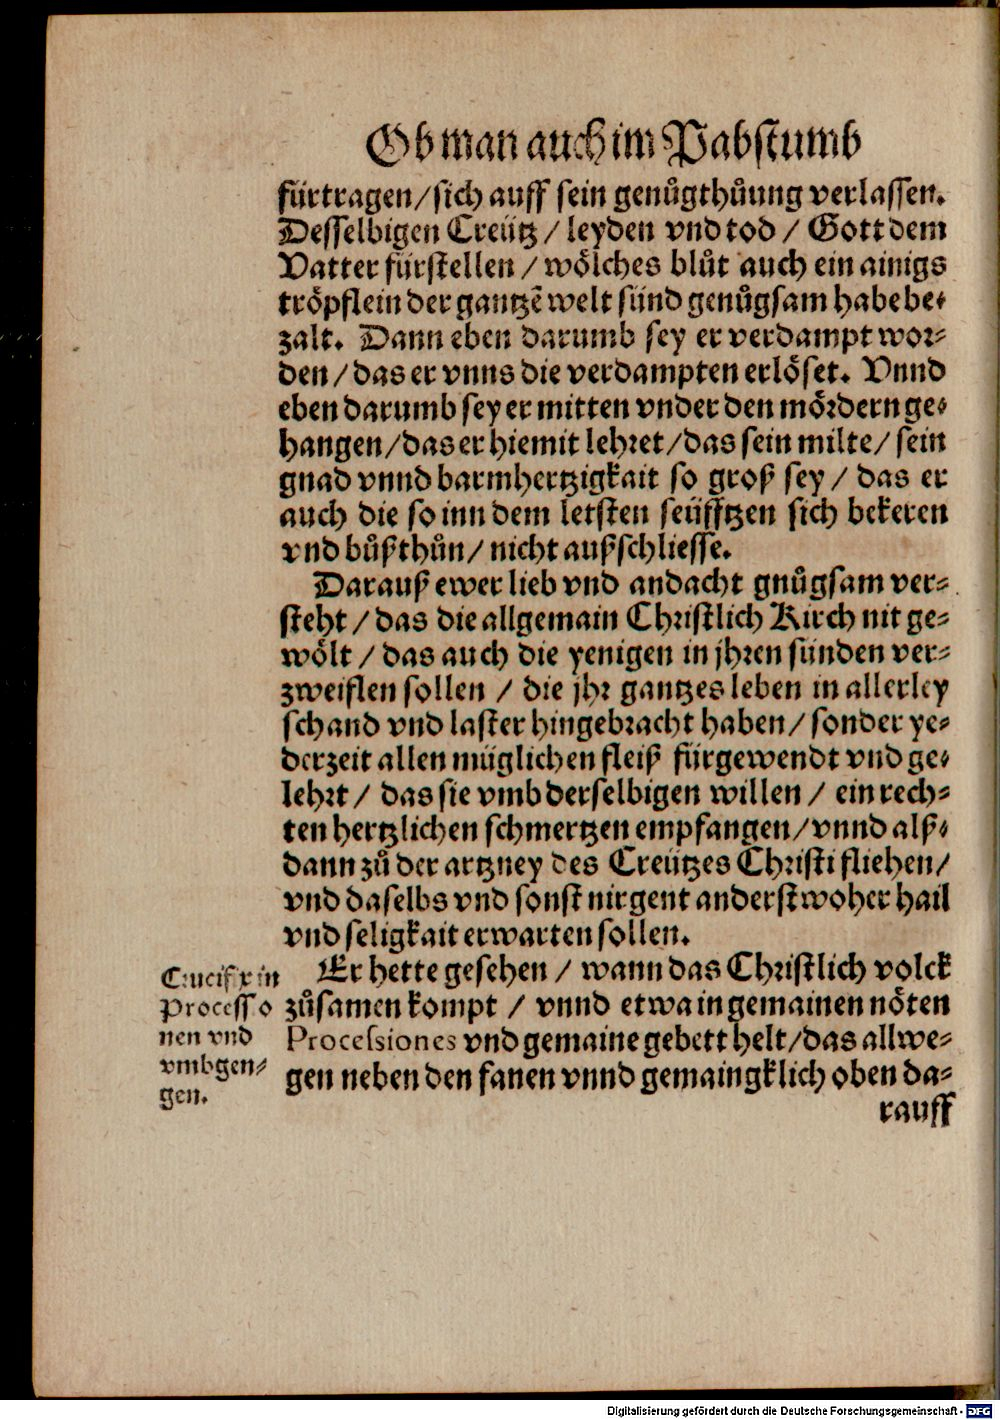 Ob man auch im Pabstumb
fürtragen / sich auff sein genůgthůung verlassen.
Desselbigen Creütz / leyden vnd tod / Gott dem
Vatter fürstellen / wölches blůt auch ein ainigs
tröpflein der gantzẽ welt sünd genůgsam habe be-
zalt. Dann eben darumb sey er verdampt wor-
den / das er vnns die verdampten erlöset. Vnnd
eben darumb sey er mitten vnder den mördern ge-
hangen / das er hiemit lehret / das sein milte / sein
gnad vnnd barmhertzigkait so groß sey / das er
auch die so inn dem letsten seüfftzen sich bekeren
vnd bůßthůn / nicht außschliesse.
Darauß ewer lieb vnd andacht gnůgsam ver-
steht / das die allgemain Christlich Kirch nit ge-
wölt / das auch die yenigen in jhren sünden ver-
zweiflen sollen / die jhr gantzes leben in allerley
schand vnd laster hingebracht haben / sonder ye-
derzeit allen müglichen fleiß fürgewendt vnd ge-
lehrt / das sie vmb derselbigen willen / ein rech-
ten hertzlichen schmertzen empfangen / vnnd alß-
dann zů der artzney des Creützes Christi fliehen /
vnd daselbs vnd sonst nirgent anderstwoher hail
vnd seligkait erwarten sollen.
Crucifx in
Processo
nen vnd
vmbgen-
gen.
Er hette gesehen / wann das Christlich volck
zůsamen kompt / vnnd etwa in gemainen nöten
Processiones vnd gemaine gebett helt / das allwe-
gen neben den fanen vnnd gemaingklich oben da-
rauff
Digitalisierung gefördert durch die Deutsche Forschungsgemeinschaft - DFG